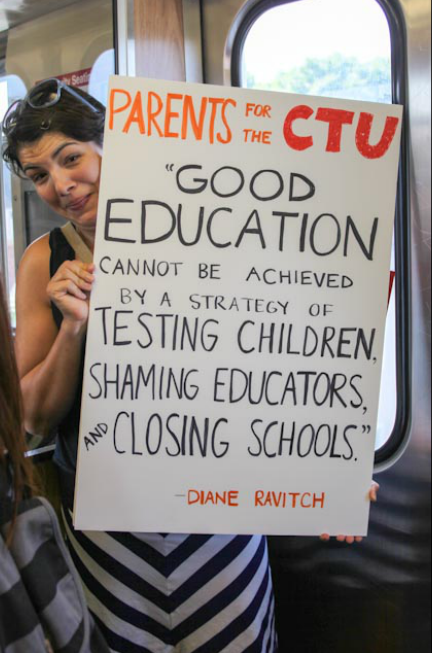 PARENTS FOR THE CTU
"GOOD
EDUCATION
CANNOT BE ACHIEVED
BY A STRATEGY OF
TESTING CHILDREN,
SHAMING EDUCATORS,
AND CLOSING SCHOOLS."
-DIANE RAVITCH